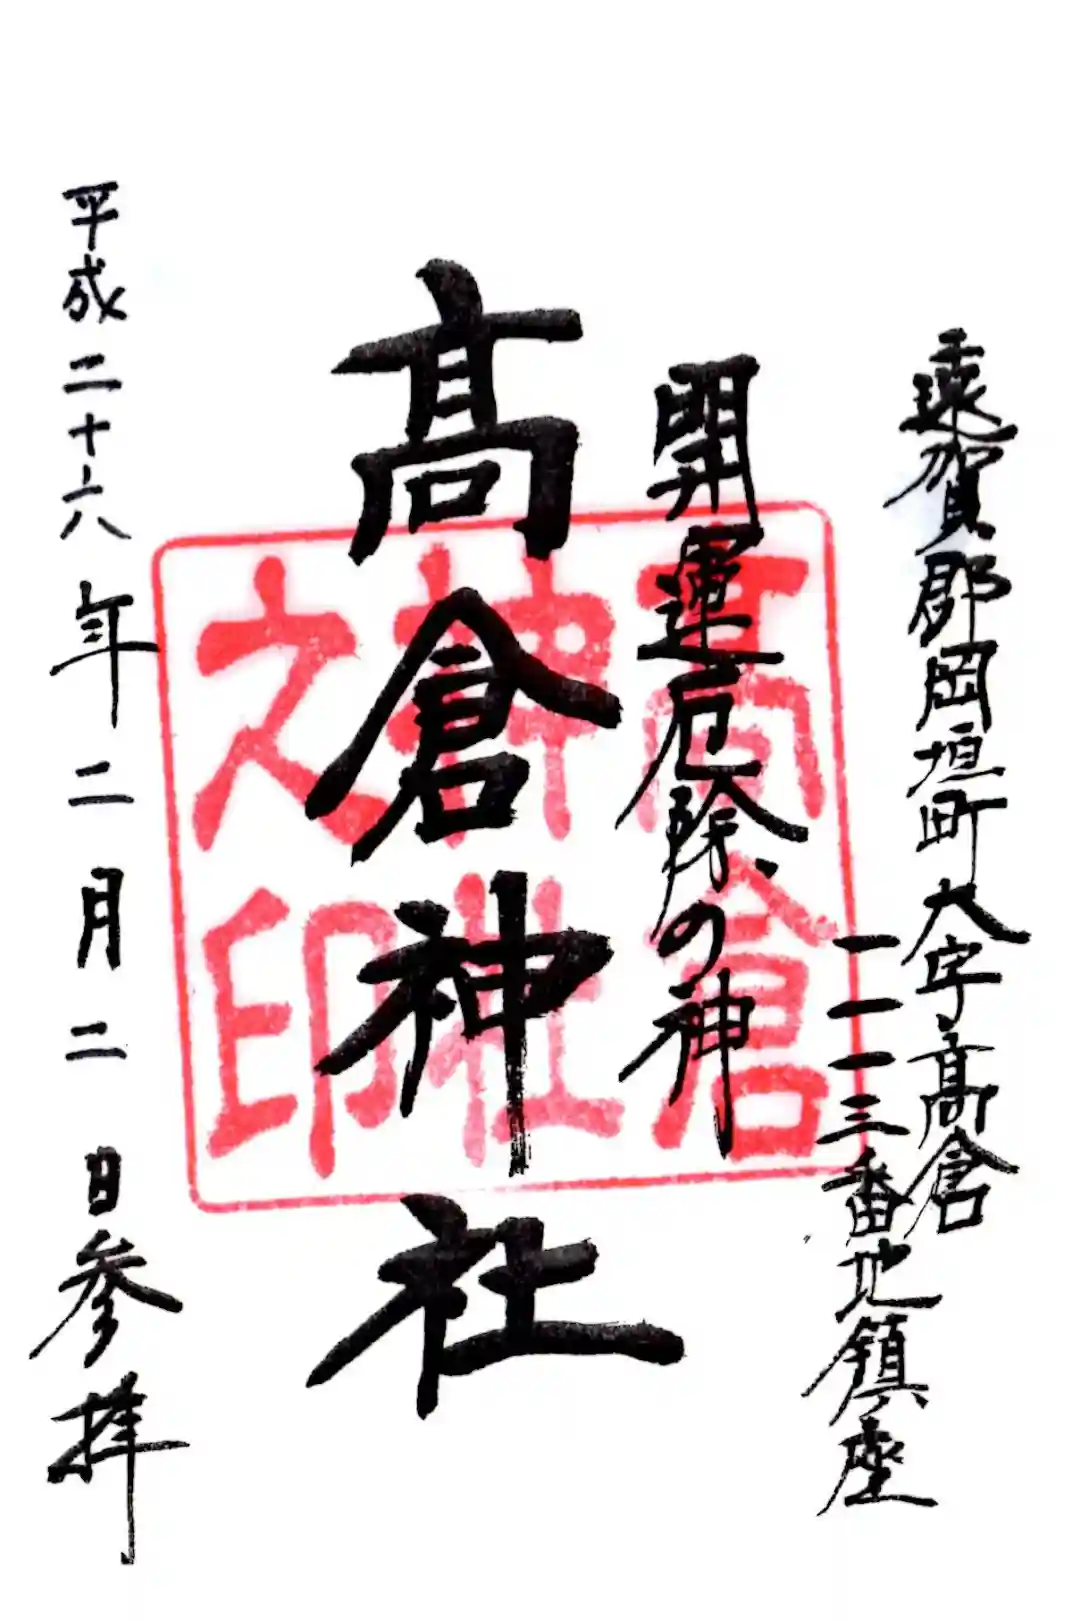 遠賀郡岡垣町大字髙倉
一一一三番地鎮座
開運厄除の神
髙倉神社
平成二十六年二月二日参拝
髙倉
神社
之印